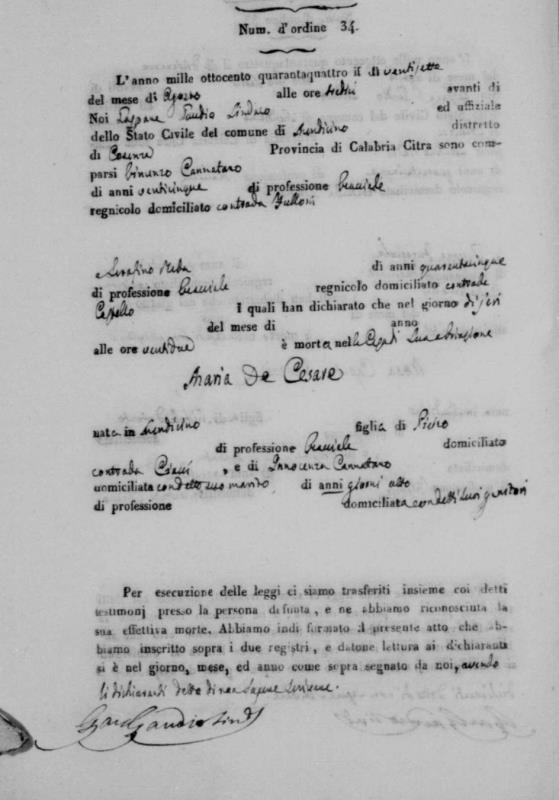 Num. d'ordine 34.
L'anno mille ottocento quarantaquattro il dì ventisette
del mese di Agosto alle ore tredici avanti di
Noi Gaspare Gaudio Sindaco ed uffiziale
dello Stato Civile del comune di Mendicino distretto
di Cosenza Provincia di Calabria Citra sono com-
parsi Vincenzo Cannataro
di anni venticinque di professione bracciale
regnicolo domiciliato contrada
e Serafino di anni quarantacinque
di professione bracciale regnicolo domiciliato contrada
I quali han dichiarato che nel giorno di jeri
del mese di anno
alle ore ventidue è morta nella Casa di Sua abitazione
Maria De Cesare
nata in Mendicino figlia di Pietro
di professione bracciale domiciliato
contrada , e di Innocenza Cannataro
domiciliata con detto suo marito di anni giorni otto
di professione domiciliata con detti suoi genitori
Per esecuzione delle leggi ci siamo trasferiti insieme coi detti
testimonj presso la persona defunta, e ne abbiamo riconosciuta la
sua effettiva morte. Abbiamo indi formato il presente atto che ab-
biamo inscritto sopra i due registri, e datone lettura ai dichiaranti
si è nel giorno, mese, ed anno come sopra segnato da noi, avendo
li dichiaranti detto di non sapere scrivere.
Gaudio Sind